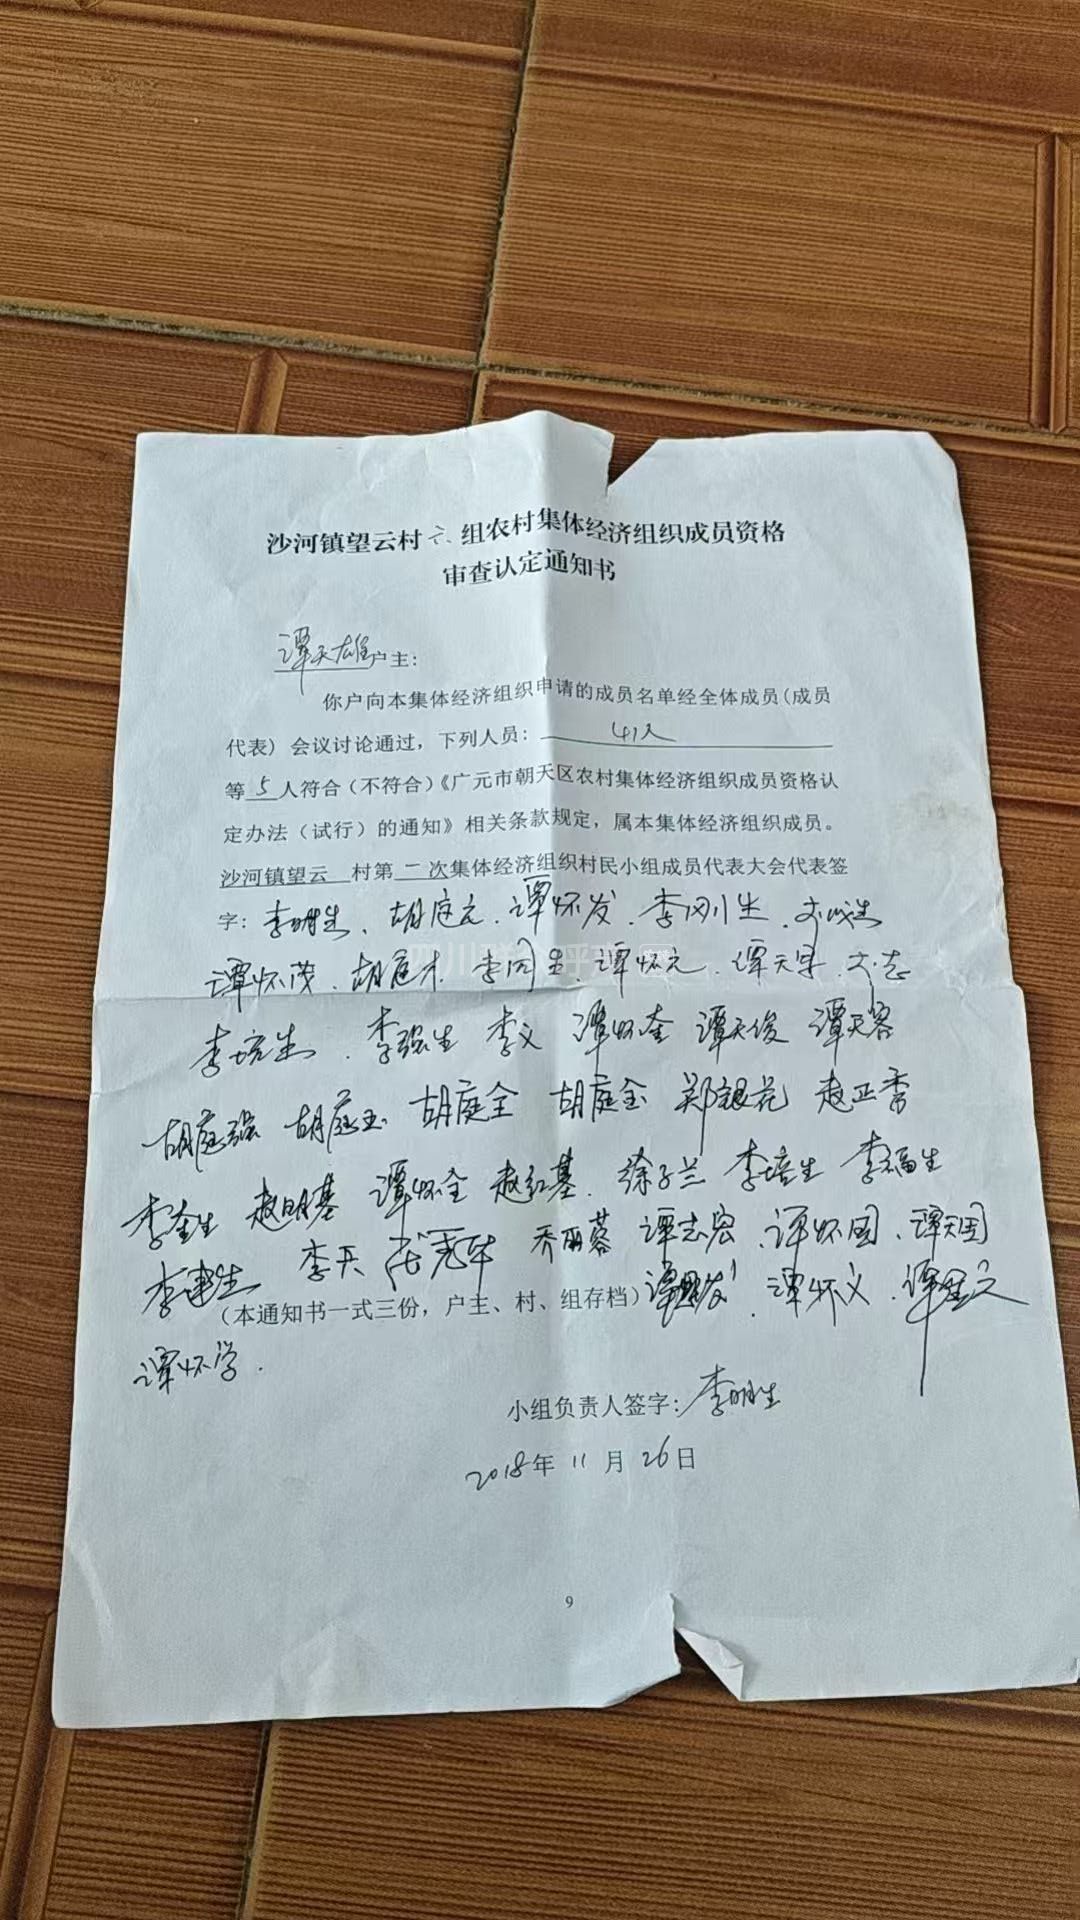 沙河镇望云村六组农村集体经济组织成员资格
审查认定通知书
谭天雄户主：
你户向本集体经济组织申请的成员名单经全体成员（成员
代表）会议讨论通过，下列人员：41人
等5人符合（不符合）《广元市朝天区农村集体经济组织成员资格认
定办法（试行）的通知》相关条款规定，属本集体经济组织成员。
沙河镇望云 村第二次集体经济组织村民小组成员代表大会代表签
字：李明生、胡庭元．谭怀发．李刚生．
谭怀茂．胡庭术 李同生．谭怀元．谭天早．
李培生．李强生 李义 谭怀奎 谭天俊 谭天容
胡庭强 胡庭玉 胡庭全 胡庭金 郑银花 赵正秀
李奎生 赵明基 谭怀全 赵红基．徐子兰 李培生 李福生
李建生 李兵 乔丽蓉 谭志宏．谭怀国．谭天国
（本通知书一式三份，户主、村、组存档）．谭怀义．
谭怀学．
小组负责人签字：李明生
2018年11月26日
9